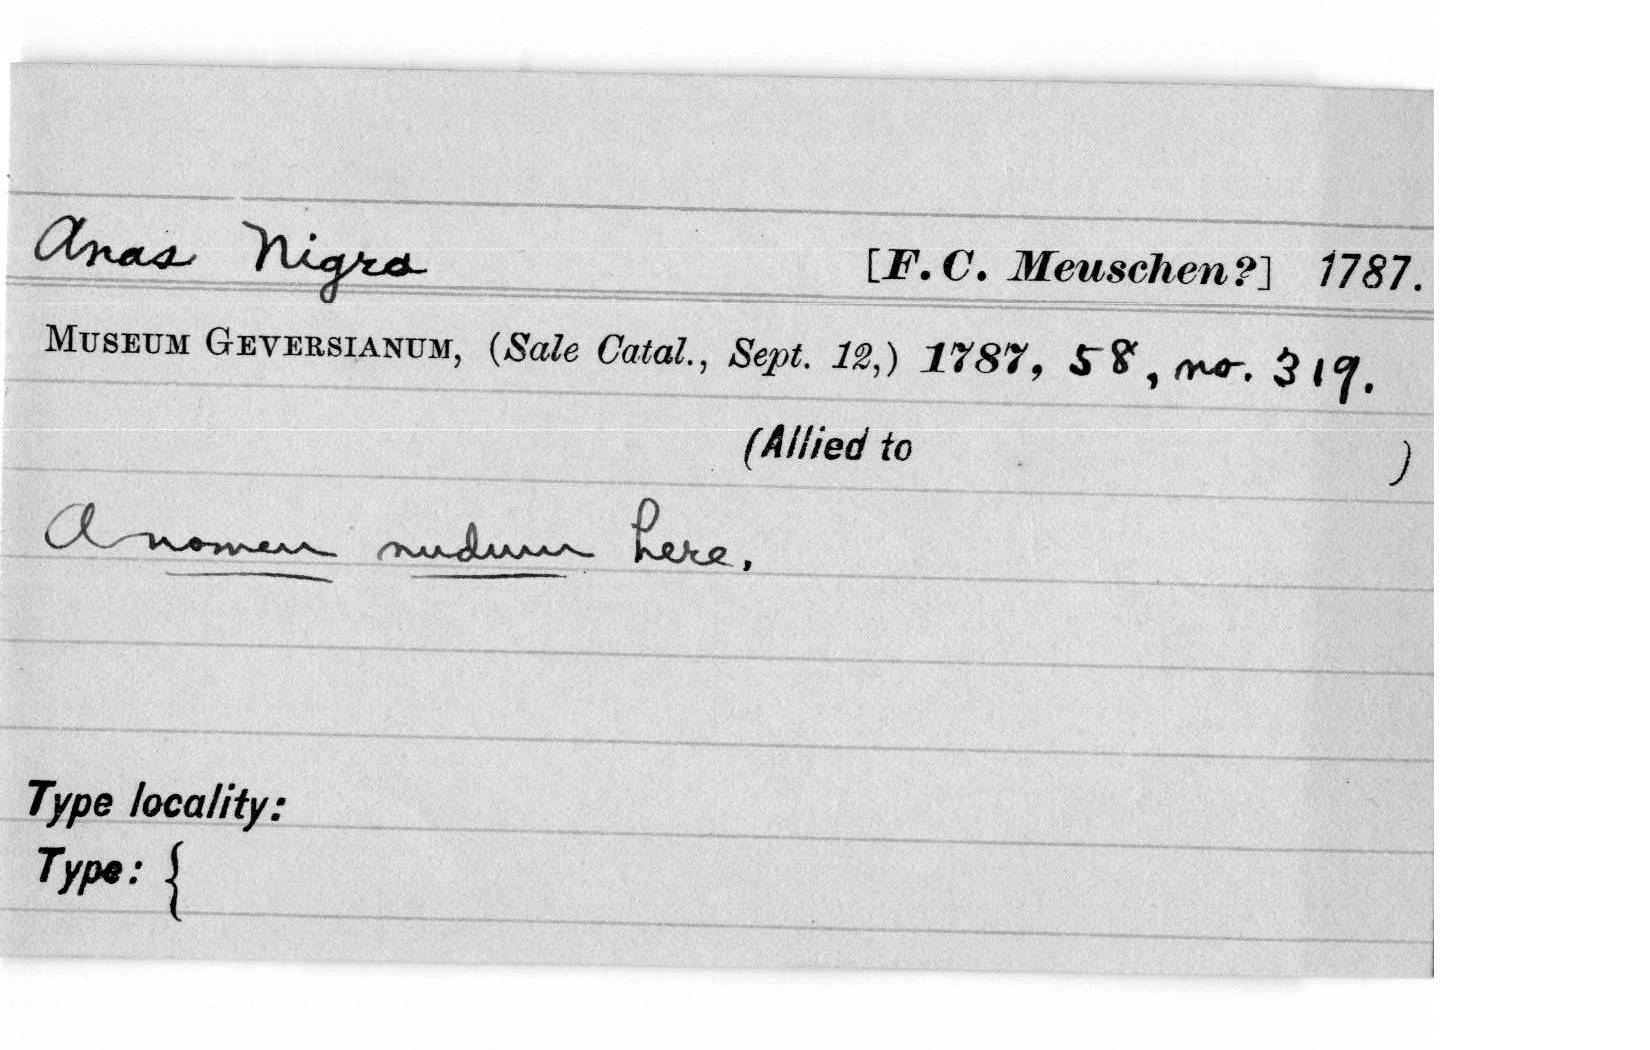 Anas Nigra [F. C. Meuschen?] 1787.
MUSEUM GEVERSIANUM, (Sale Catal., Sept. 12,) 1787, 58, no. 319.
(Allied to )
A nomen nudum here.
Type locality:
Type: {